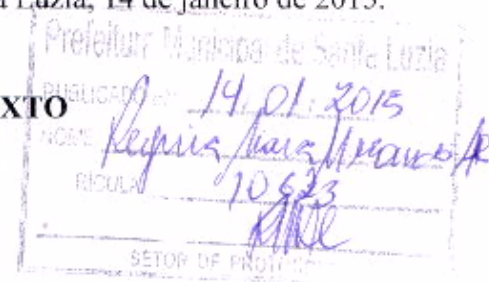 Luzia, 14 de janeiro de 2015.
Prefeitura Municipal de Santa Luzia
XTO
PUBLICADO 14.01.2015
NOME Regina Mara
RICULA 10623
SETOR DE PROTO